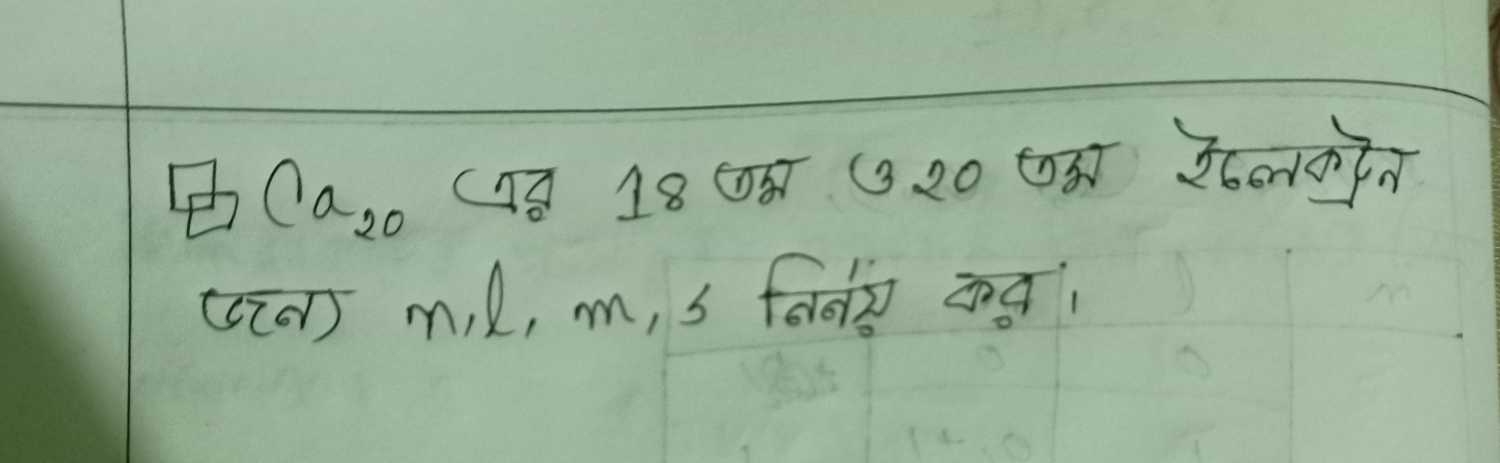 Ca₂₀ এর 18 তম ও ২০ তম ইলেকট্রন
জন্য n, l, m, s নির্নয় কর।